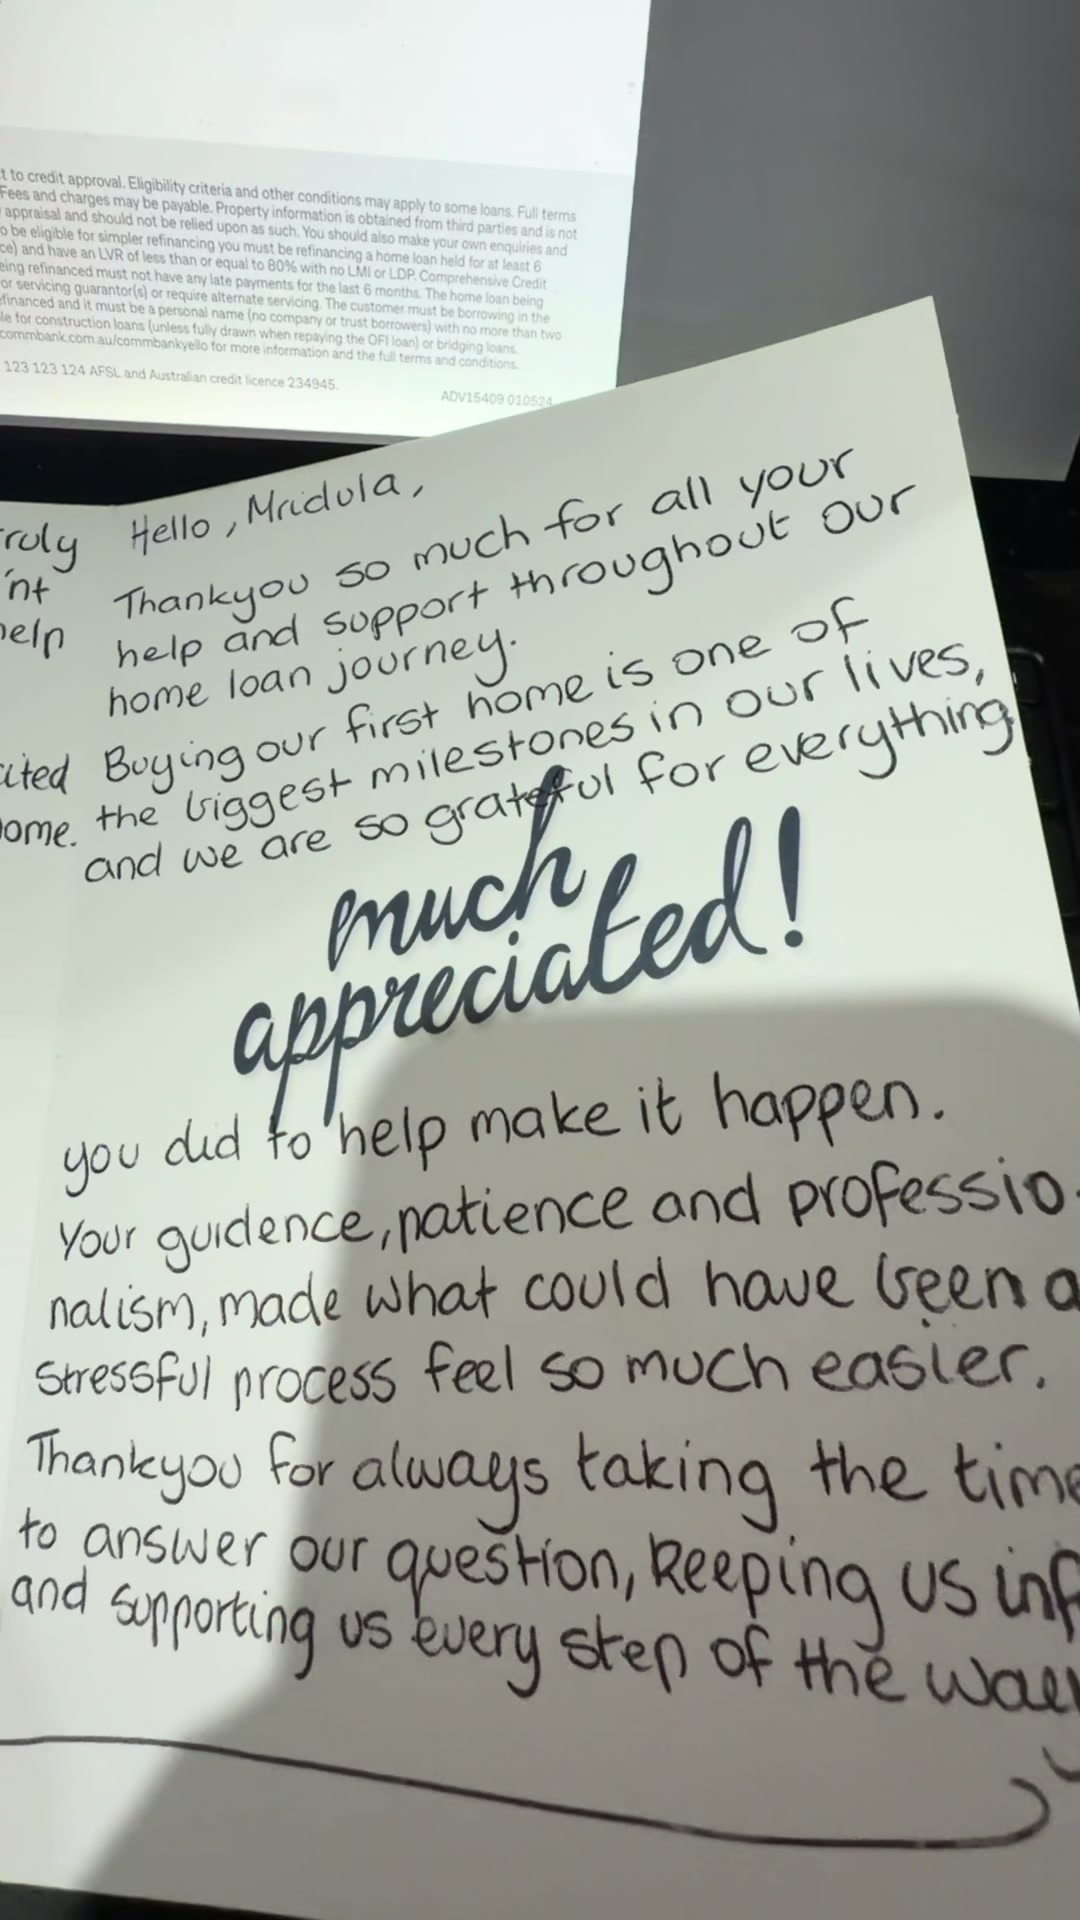 t to credit approval. Eligibility criteria and other conditions may apply to some loans. Full terms
Fees and charges may be payable. Property information is obtained from third parties and is not
appraisal and should not be relied upon as such. You should also make your own enquiries and
o be eligible for simpler refinancing you must be refinancing a home loan held for at least 6
ce) and have an LVR of less than or equal to 80% with no LMI or LDP. Comprehensive Credit
eing refinanced must not have any late payments for the last 6 months. The home loan being
or servicing guarantor(s) or require alternate servicing. The customer must be borrowing in the
efinanced and it must be a personal name (no company or trust borrowers) with no more than two
le for construction loans (unless fully drawn when repaying the OFI loan) or bridging loans.
commbank.com.au/commbankyello for more information and the full terms and conditions.
123 123 124 AFSL and Australian credit licence 234945.
ADV15409 010524
ruly
nt
help
cited
ome.
Hello, Mridula,
Thankyou so much for all your
help and support throughout our
home loan journey.
Buying our first home is one of
the biggest milestones in our lives,
and we are so grateful for everything
much
appreciated!
you did to help make it happen.
Your guidence, patience and professio
nalism, made what could have been a
stressful process feel so much easier.
Thankyou for always taking the time
to answer our question, keeping us inf
and supporting us every step of the way